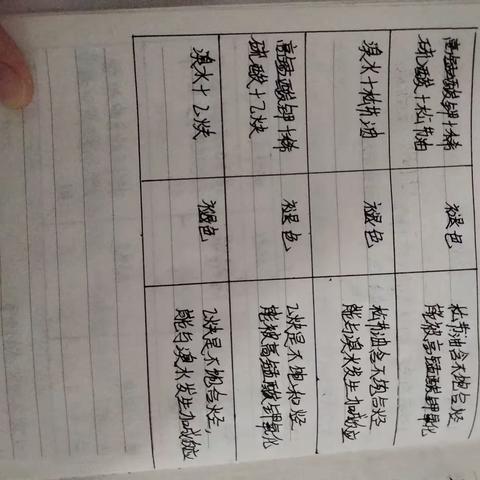 高锰酸钾+稀
硫酸+松节油
褪色
松节油含不饱合烃
能被高锰酸钾氧化
溴水+松节油
褪色
松节油含不饱合烃
能与溴水发生加成反应
高锰酸钾+稀
硫酸+乙炔
褪色
乙炔是不饱和烃
能被高锰酸钾氧化
溴水+乙炔
褪色
乙炔是不饱合烃,
能与溴水发生加成反应